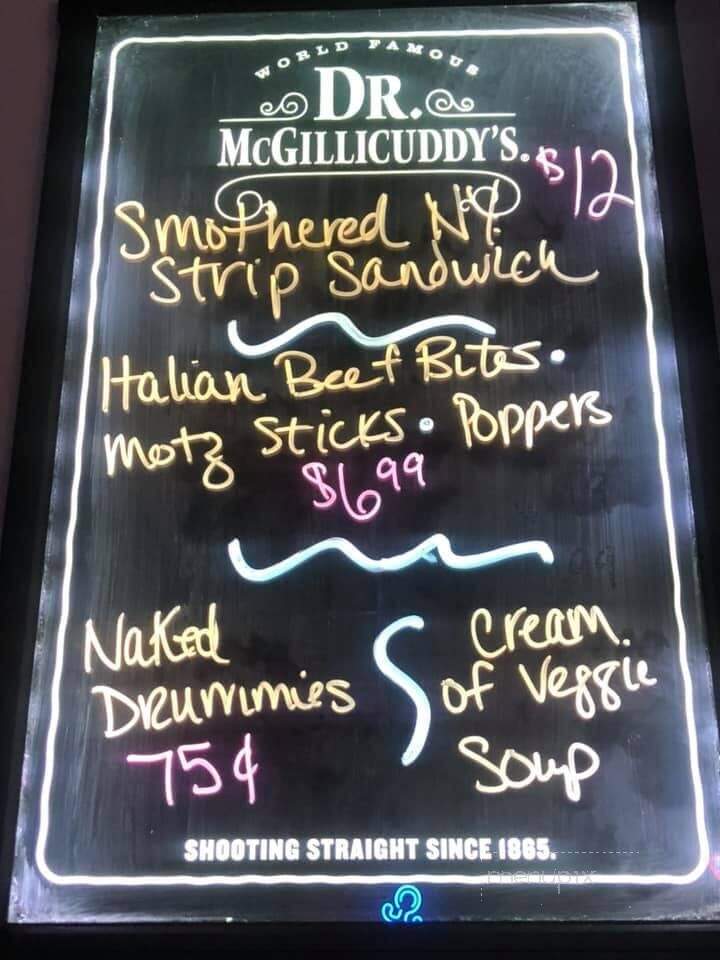 WORLD FAMOUS
DR.
McGILLICUDDY'S.
$12
Smothered NY.
Strip Sandwich
Italian Beef Bites •
Motz Sticks • Poppers
$6.99
Naked
Drummies
75¢
Cream
of Veggie
Soup
SHOOTING STRAIGHT SINCE 1865.
menupix